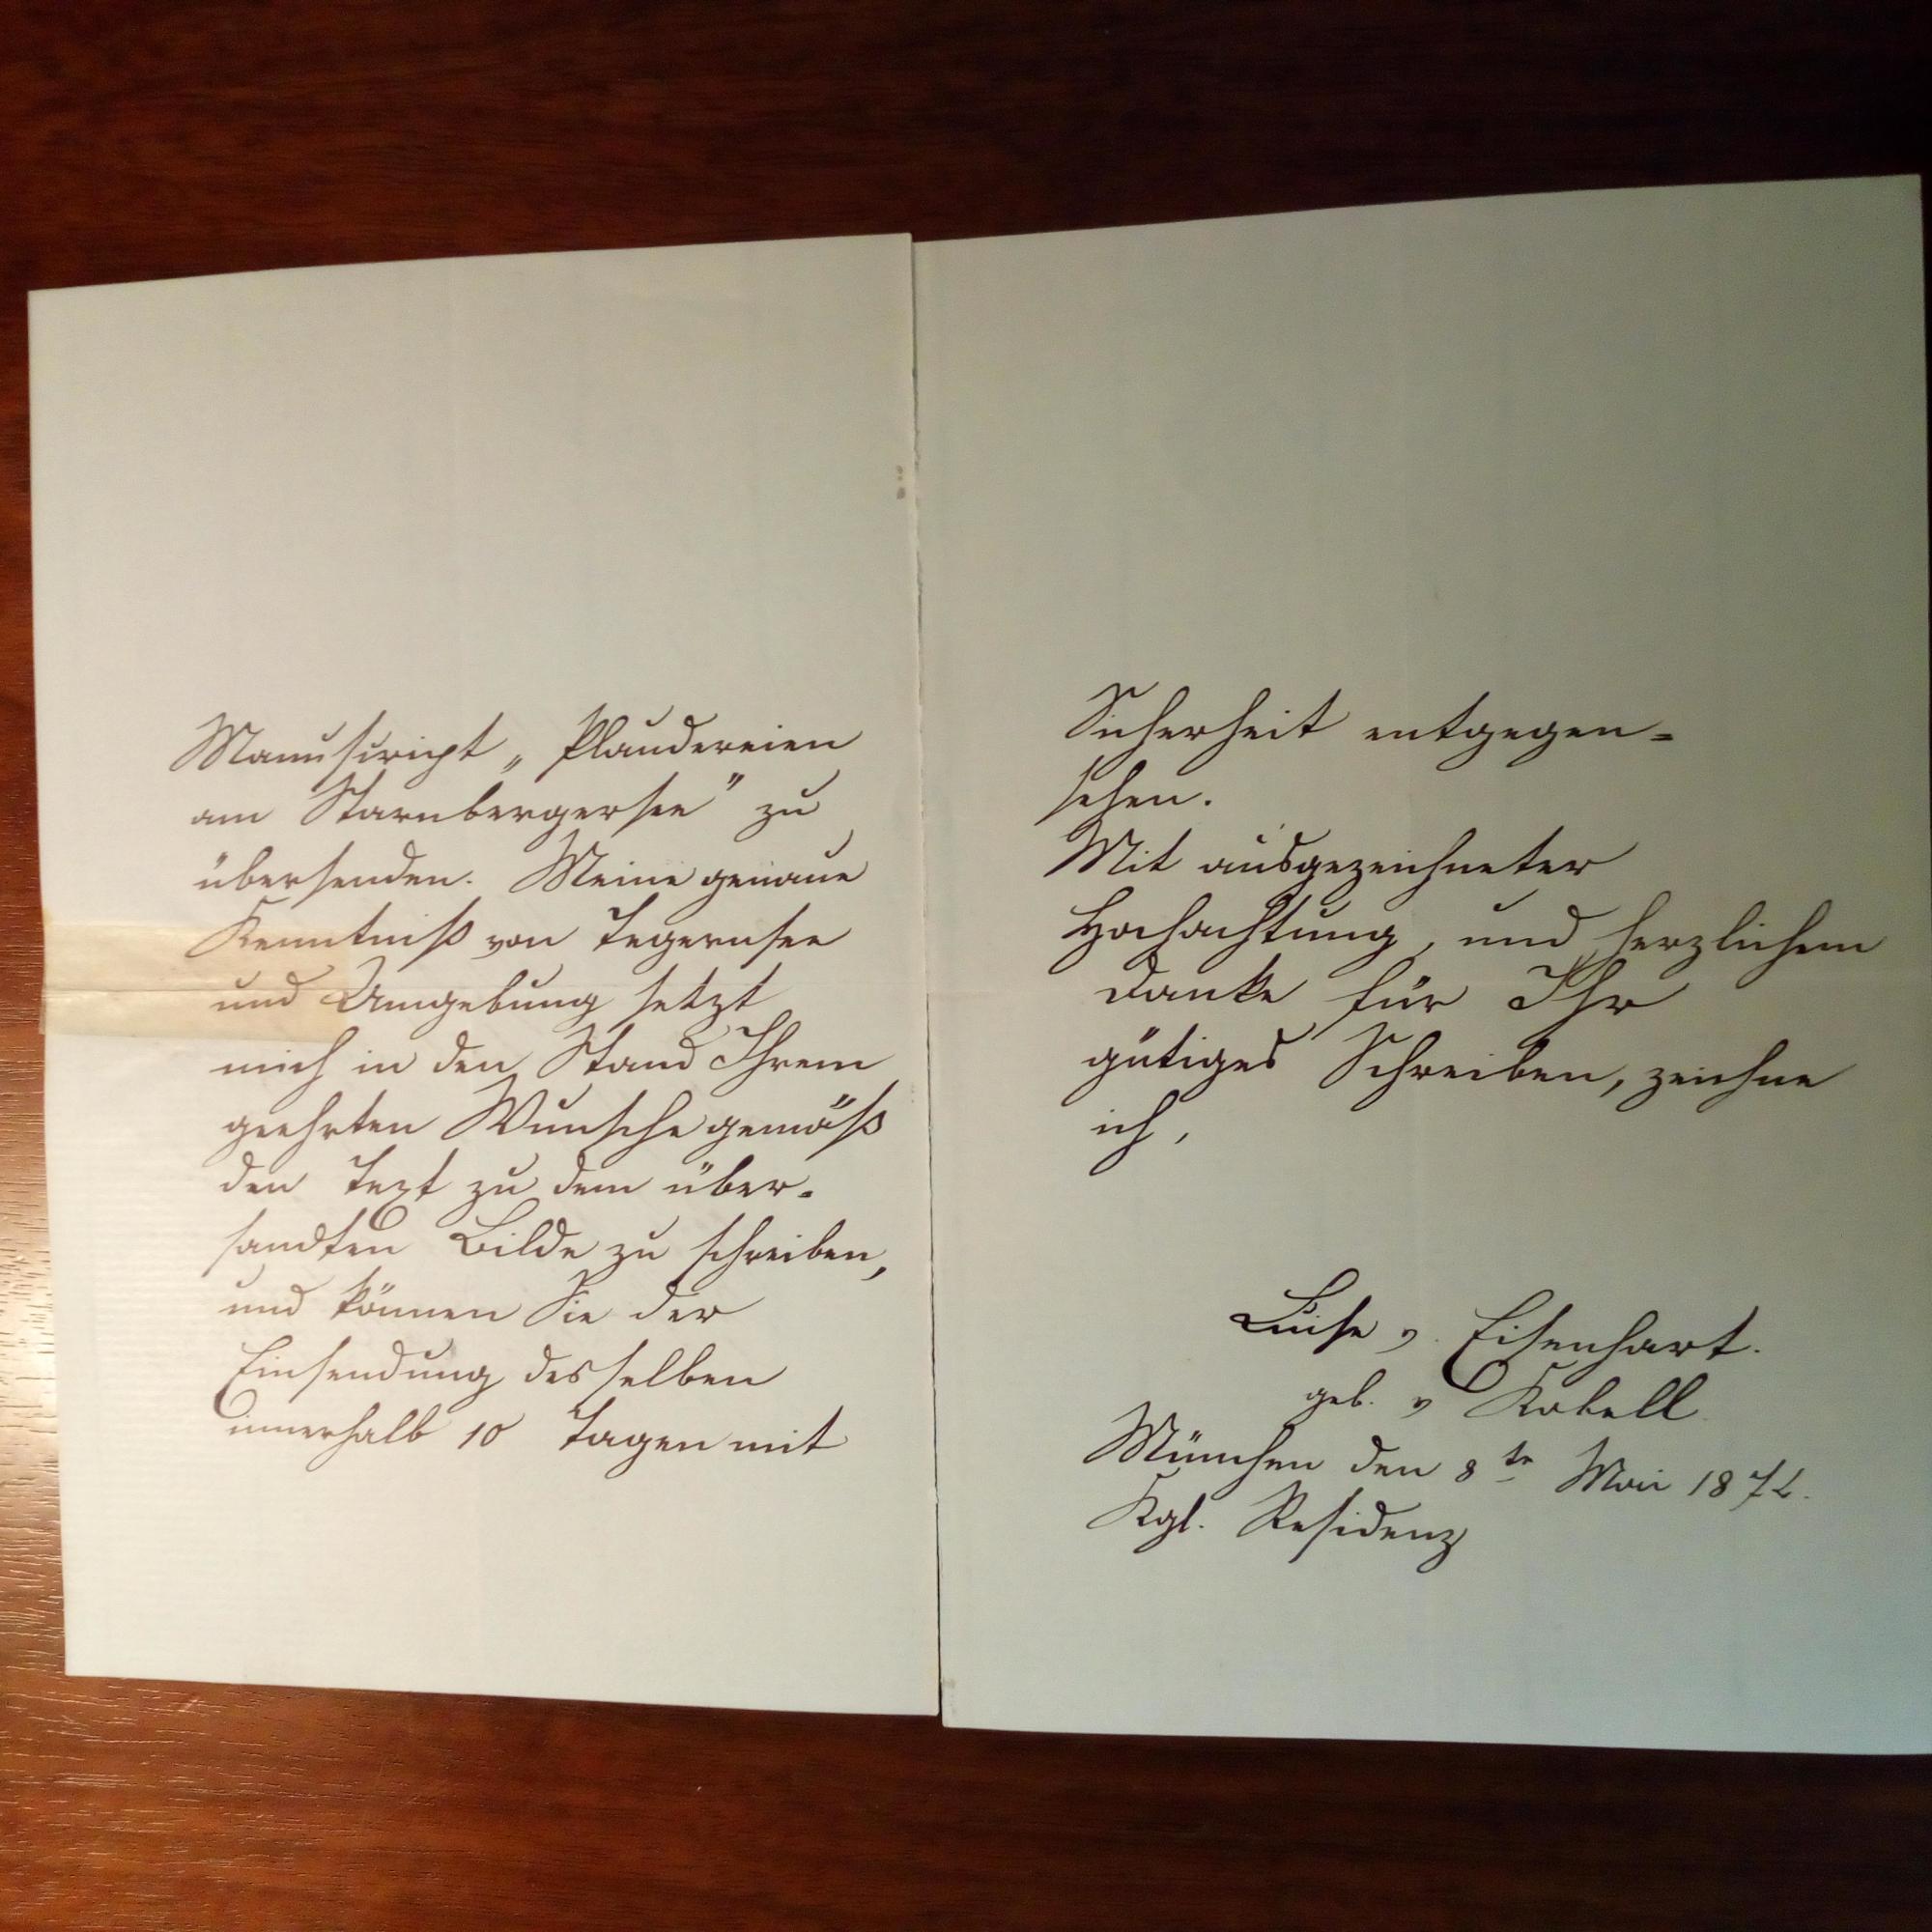 Manuscript „Plaudereien
am Starnbergersee" zu
übersenden. Meine genaue
Kenntniß von Tegernsee
und Umgebung setzt
mich in den Stand Ihrem
geehrten Wunsche gemäß
den Text zu dem über-
sandten Bilde zu schreiben,
und können Sie der
Einsendung desselben
innerhalb 10 Tagen mit
Sicherheit entgegen=
sehen.
Mit ausgezeichneter
Hochachtung, und herzlichem
Danke für Ihr
gütiges Schreiben, zeichne
ich,
Luise v. Eisenhart.
geb. v Kobell.
München den 8te Mai
Kgl. Residenz